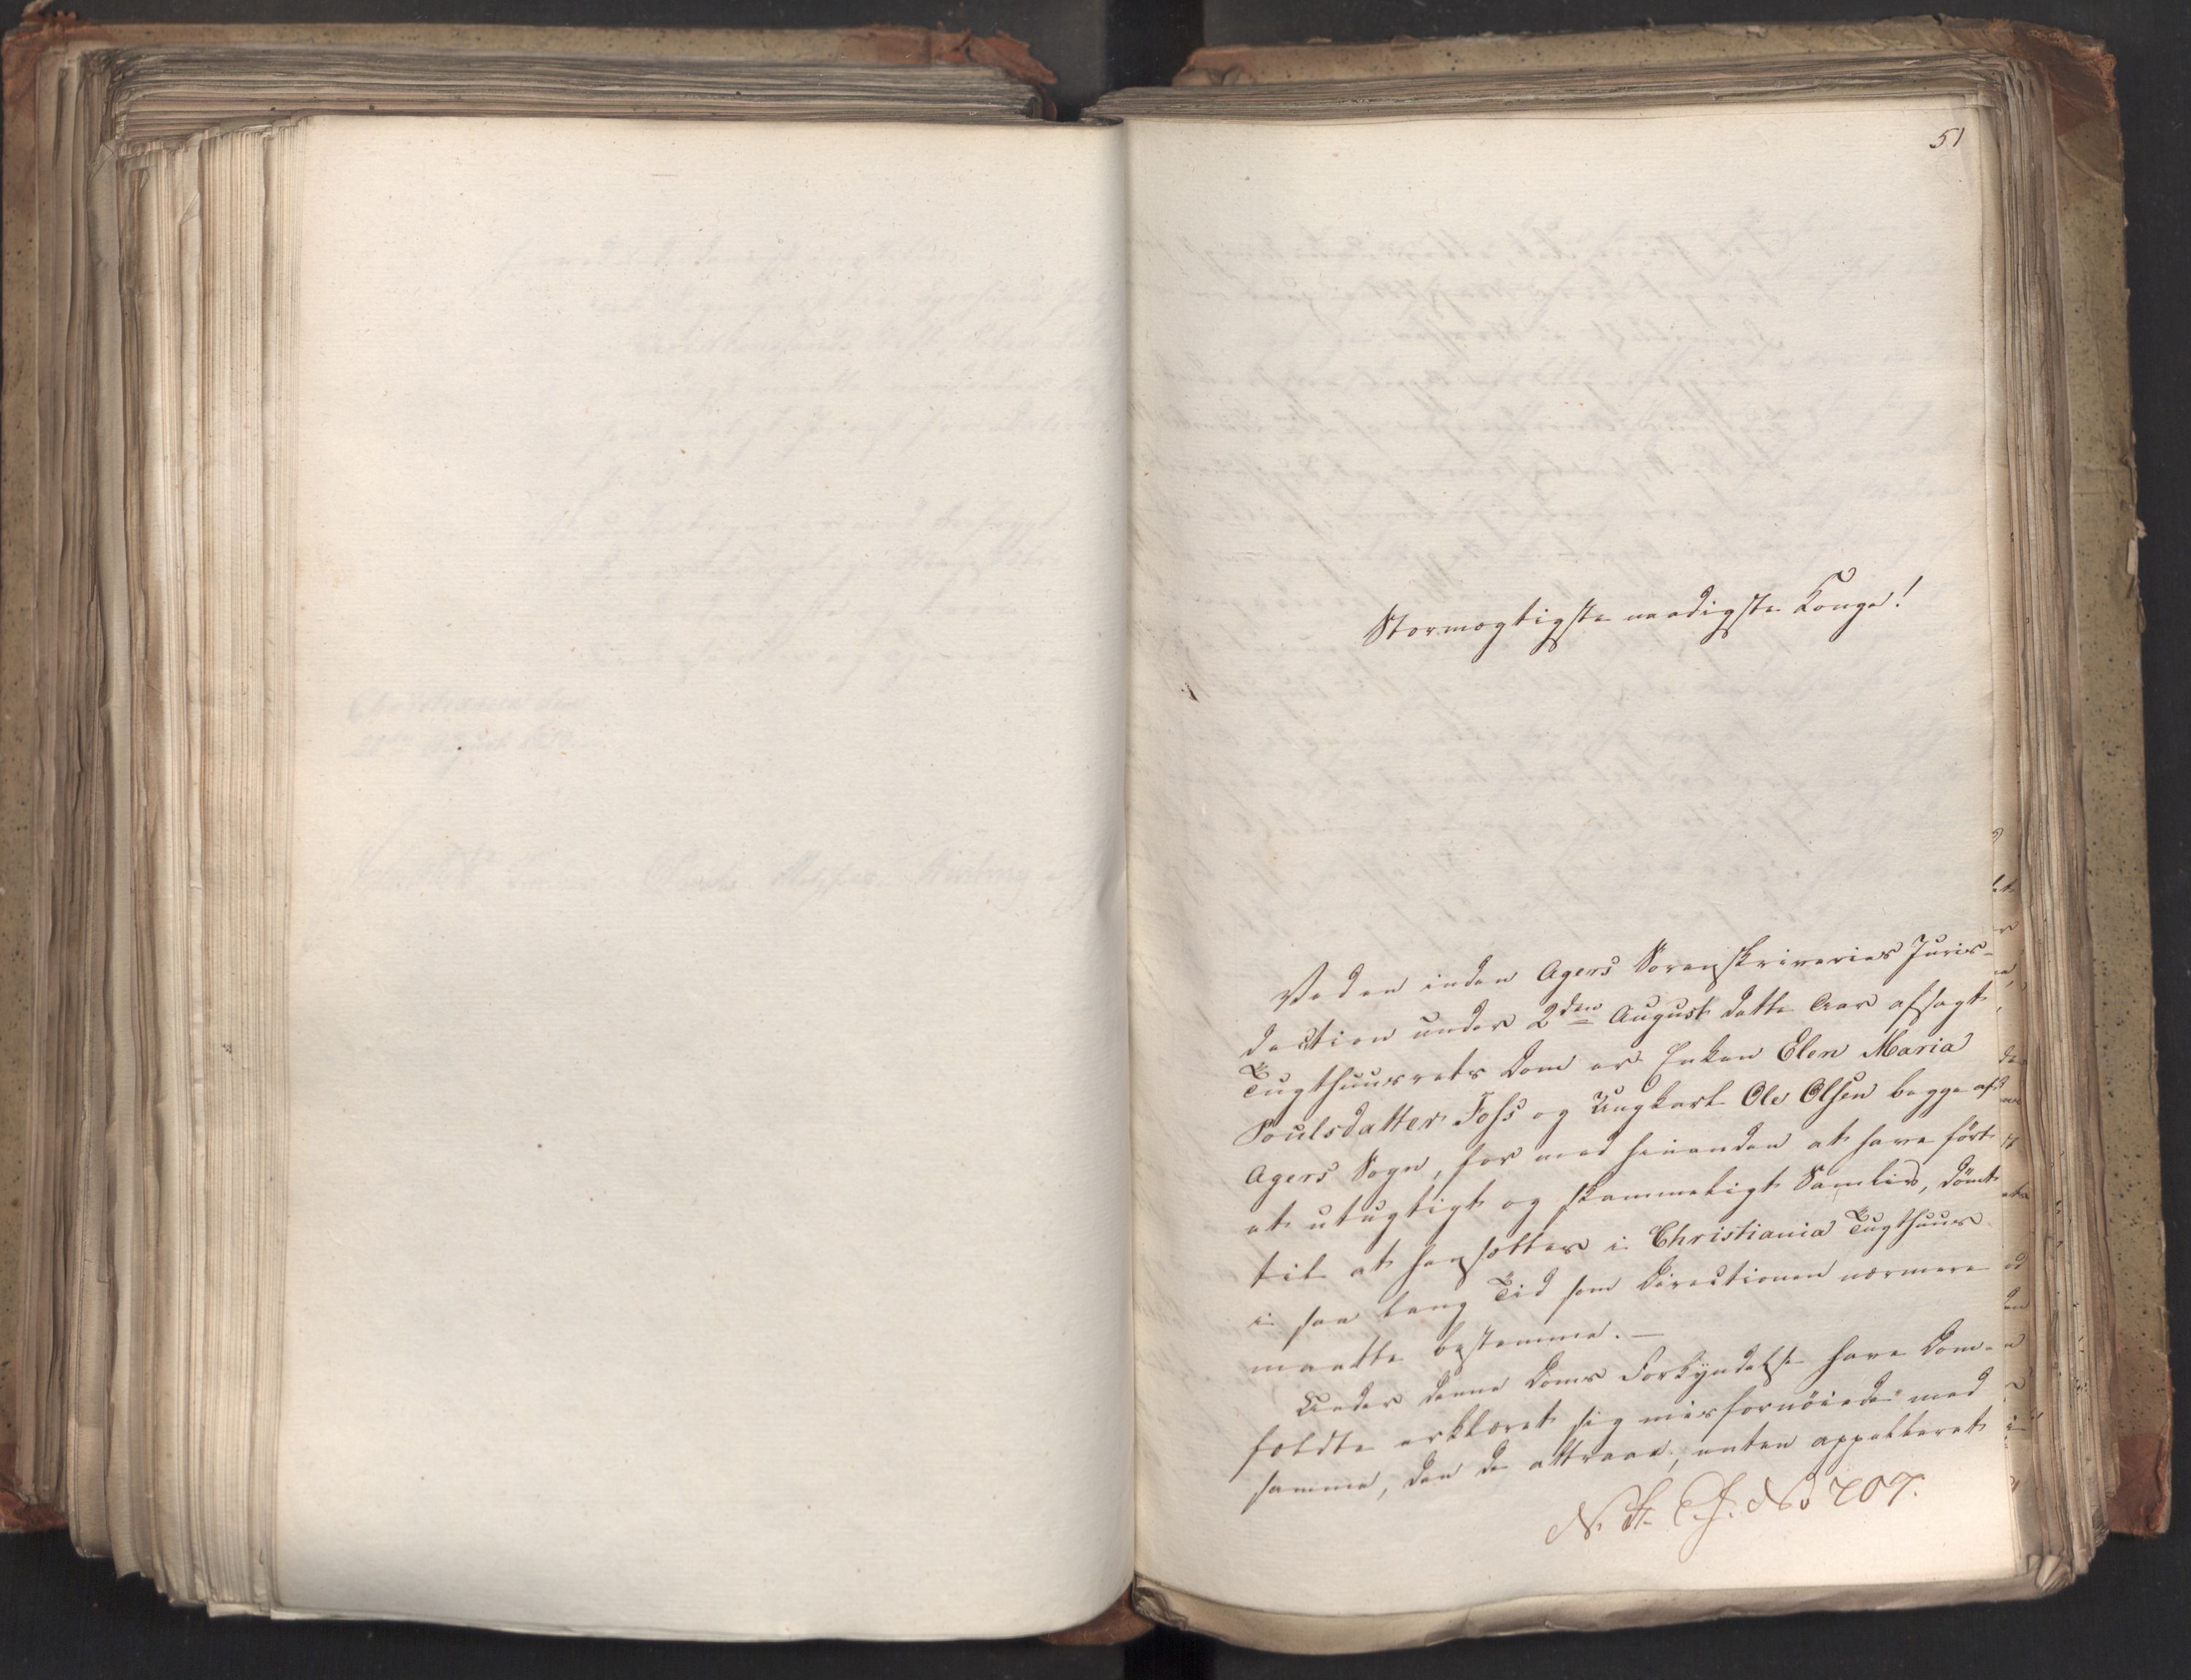 51
Stormægtigste naadigste Konge!
Ved en inden Agers Sorenskriveries Juris-
diction under 2den August dette Aar afsagt
Tugthuusrets Dom er Enken Elen Maria
Poulsdatter Foss og Ungkarl Ole Olsen begge af
Agers Sogn, for med hinanden at have ført
et utugtigt og skammeligt Samliv, dømt
til at hensættes i Christiania Tugthuus
i saa lang Tid som Directionen nærmere
maatte bestemme. —
Under denne Doms Forkyndelse have Dom-
fældte erklæret sig misfornöiede med
samme, den de attraae, enten appelleret
No 707.